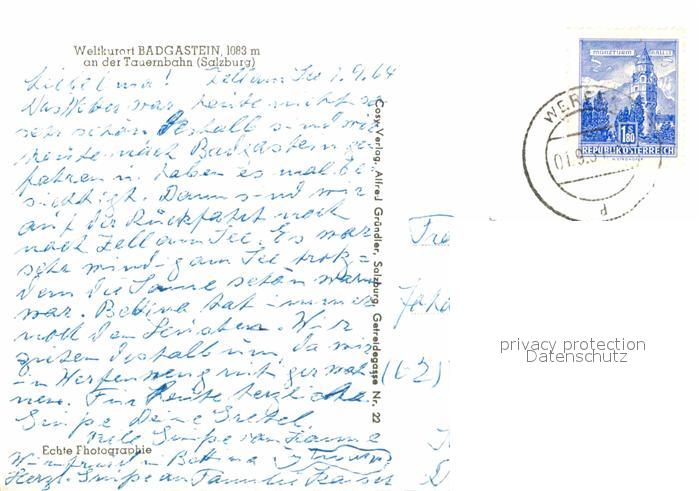 Weltkurort BADGASTEIN, 1083 m
an der Tauernbahn (Salzburg)
Zell am See 1.9.64
Das Wetter war heute nicht so
sehr schön deshalb sind wir
heute nach Badgastein ge-
fahren haben es mal be-
sichtigt. Dann sind wir
auf der Rückfahrt noch
nach Zell am See. Es war
sehr windig am See trotz-
dem die Sonne schön warm
war. Bettina hat immer
noch den
deshalb um, da wir
in Werfenweng
Für heute herzliche
Grüße Deine Gretel.
Viele Grüße von
Winfried in Bettina
Herzl. Grüße an Familie
Echte Photographie
Cosy-Verlag, Alfred Gründler, Salzburg, Getreidegasse Nr. 22
MÜNZTURM HALL I.T.
S 1.80
REPUBLIK ÖSTERREICH
WERFE
01.9.
d
privacy protection
Datenschutz